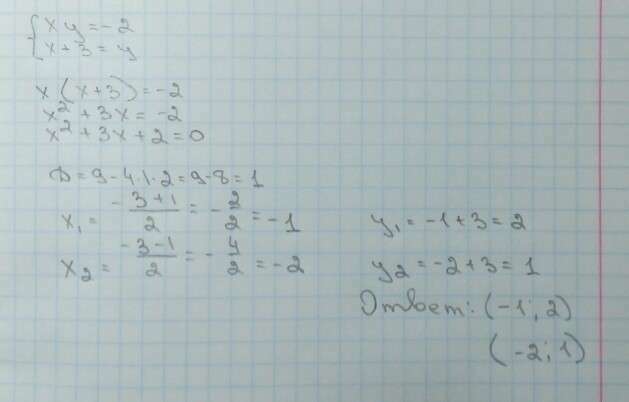 { xy = -2
x + 3 = y
x (x+3) = -2
x² + 3x = -2
x² + 3x + 2 = 0
D = 9 - 4·1·2 = 9 - 8 = 1
x₁ = \frac{-3+1}{2} = -\frac{2}{2} = -1
y₁ = -1 + 3 = 2
x₂ = \frac{-3-1}{2} = -\frac{4}{2} = -2
y₂ = -2 + 3 = 1
Ответ: (-1; 2)
(-2; 1)